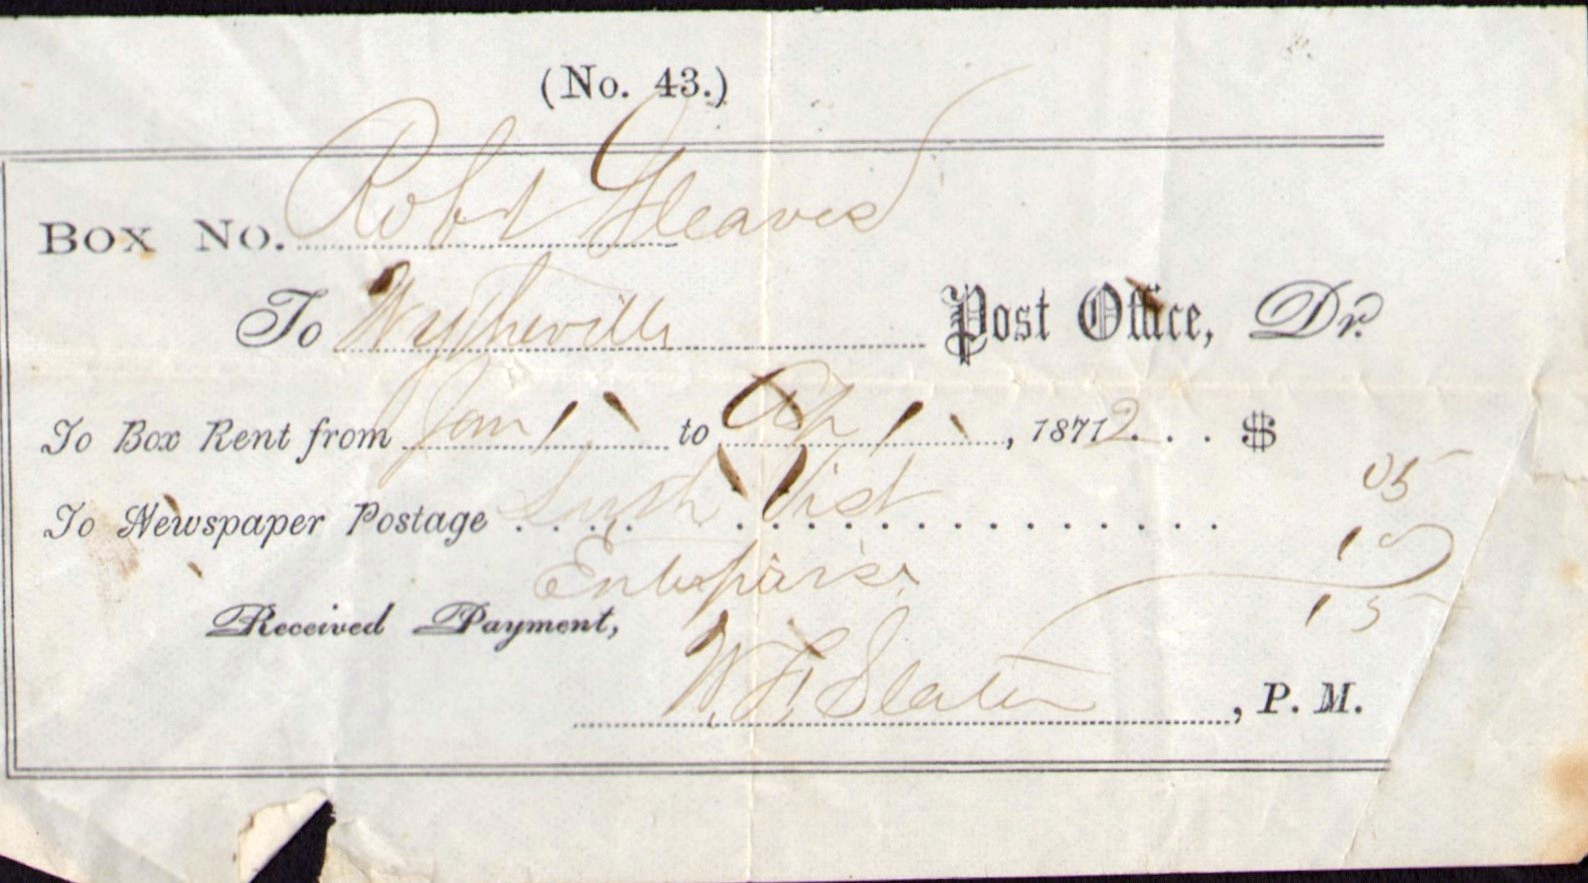 (No. 43.)
Box No. Robt Gleaves
To Wytheville Post Office, Dr.
To Box Rent from Jan 1 to Ap 1, 1872 . . . $
To Newspaper Postage . . . . Luth Vist . . . . 05
Enterprise 10
15
Received Payment,
W. F. Slater, P. M.